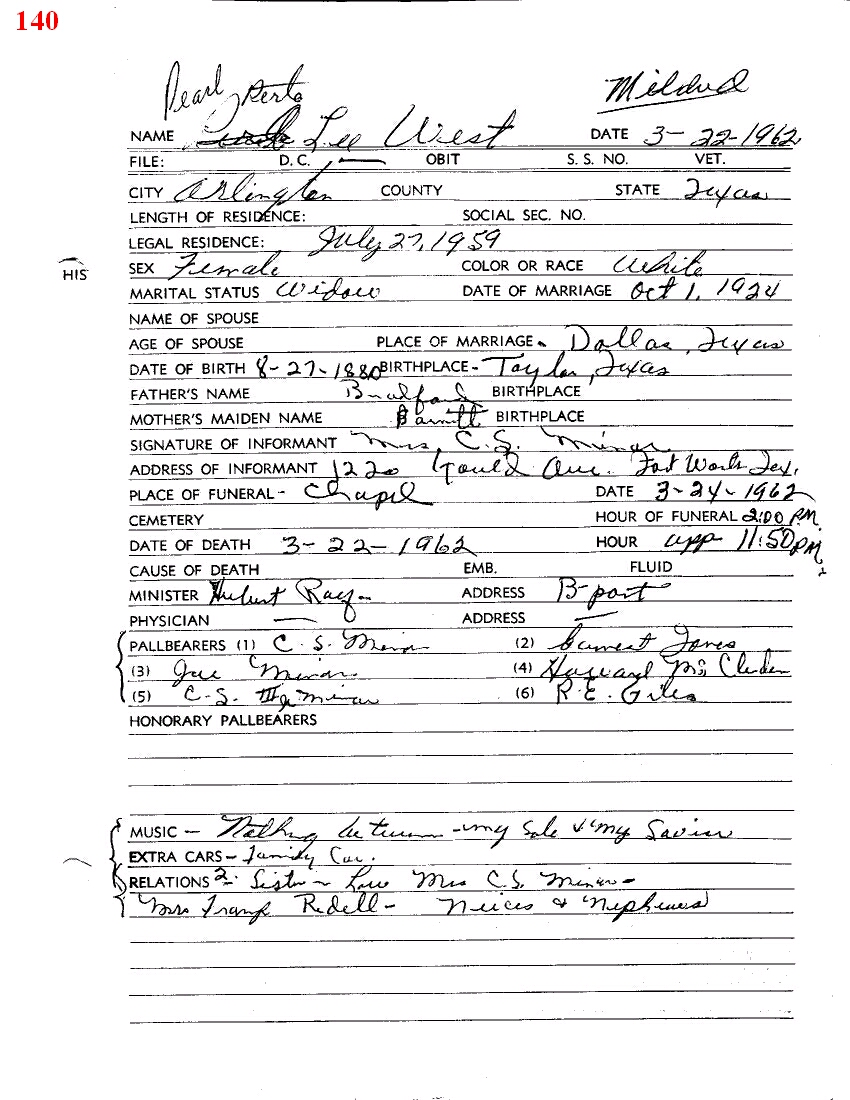 140
Pearl Mildred
NAME Lee West DATE 3-22-1962
FILE: D.C. OBIT S. S. NO. VET.
CITY Arlington COUNTY STATE Texas
LENGTH OF RESIDENCE: SOCIAL SEC. NO.
LEGAL RESIDENCE: July 27, 1959
HIS
SEX Female COLOR OR RACE White
MARITAL STATUS Widow DATE OF MARRIAGE Oct 1, 1924
NAME OF SPOUSE
AGE OF SPOUSE PLACE OF MARRIAGE - Dallas, Texas
DATE OF BIRTH 8-27-1880 BIRTHPLACE - Taylor, Texas
FATHER'S NAME BIRTHPLACE
MOTHER'S MAIDEN NAME BIRTHPLACE
SIGNATURE OF INFORMANT Mrs. C.S. Minor
ADDRESS OF INFORMANT 1220 Gould Ave. Fort Worth Tex.
PLACE OF FUNERAL - Chapel DATE 3-24-1962
CEMETERY HOUR OF FUNERAL 2:00 P.M.
DATE OF DEATH 3-22-1962 HOUR app 11:50 PM
CAUSE OF DEATH EMB. FLUID
MINISTER Hubert ADDRESS B-port
PHYSICIAN — ADDRESS —
PALLBEARERS (1) C. S. Minor (2) Jones
(3) Joe Minor (4) Howard
(5) C.S. III Minor (6) R.E. Giles
HONORARY PALLBEARERS
MUSIC - Nothing between - my Sole & my Savior
EXTRA CARS - Family Car.
RELATIONS 2- Sister n Law Mrs C.S. Minor -
Mrs Redell - Neices & Nephews